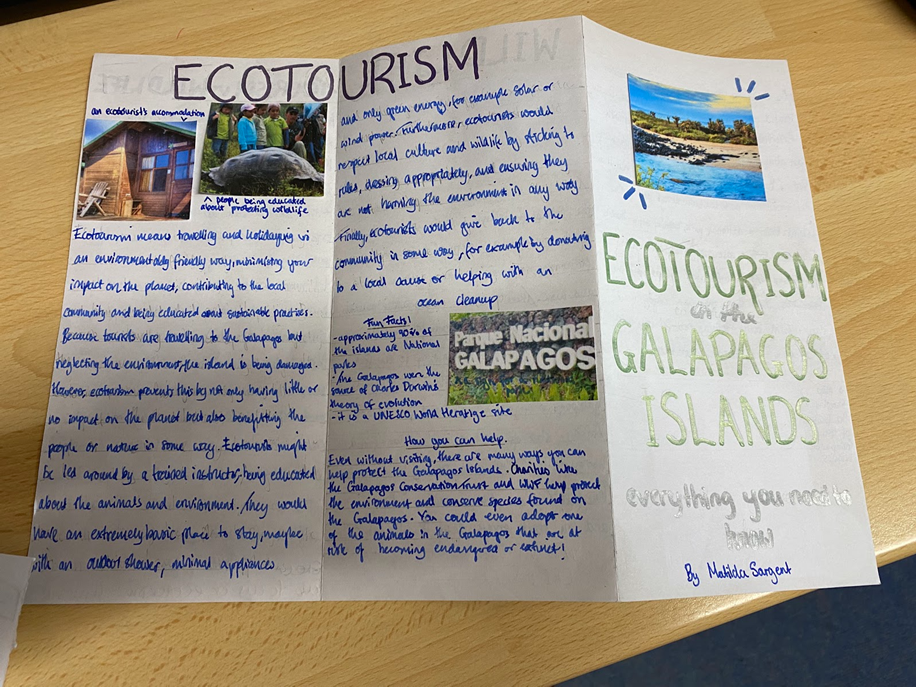 ECOTOURISM
an ecotourist's accomodation
^ people being educated
about protecting wildlife
Ecotourism means travelling and holidaying in
an environmentally friendly way, minimising your
impact on the planet, contributing to the local
community and being educated about sustainable practices.
Because tourists are travelling to the Galapagos but
neglecting the environment, the island is being damaged.
However, ecotourism prevents this by not only having little or
no impact on the planet but also benefitting the
people or nature in some way. Ecotourists might
be led around by a trained instructor, being educated
about the animals and environment. They would
have an extremely basic place to stay, maybe
with an outdoor shower, minimal appliances
and only green energy, for example solar or
wind power. Furthermore, ecotourists would
respect local culture and wildlife by sticking to
rules, dressing appropriately, and ensuring they
are not harming the environment in any way
Finally, ecotourists would give back to the
community in some way, for example by donating
to a local cause or helping with an
ocean cleanup
Fun Facts!
- approximately 90% of
the islands are National
parks
- The Galapagos were the
source of Charles Darwin's
theory of evolution
- it is a UNESCO World Heratige site
Parque Nacional
GALAPAGOS
How you can help.
Even without visiting, there are many ways you can
help protect the Galapagos Islands. Charities like
the Galapagos Conservation Trust and WWF help protect
the environment and conserve species found on
the Galapagos. You could even adopt one
of the animals in the Galapagos that are at
risk of becoming endangered or extinct!
ECOTOURISM
in the
GALAPAGOS
ISLANDS
everything you need to
know
By Matilda Sargent